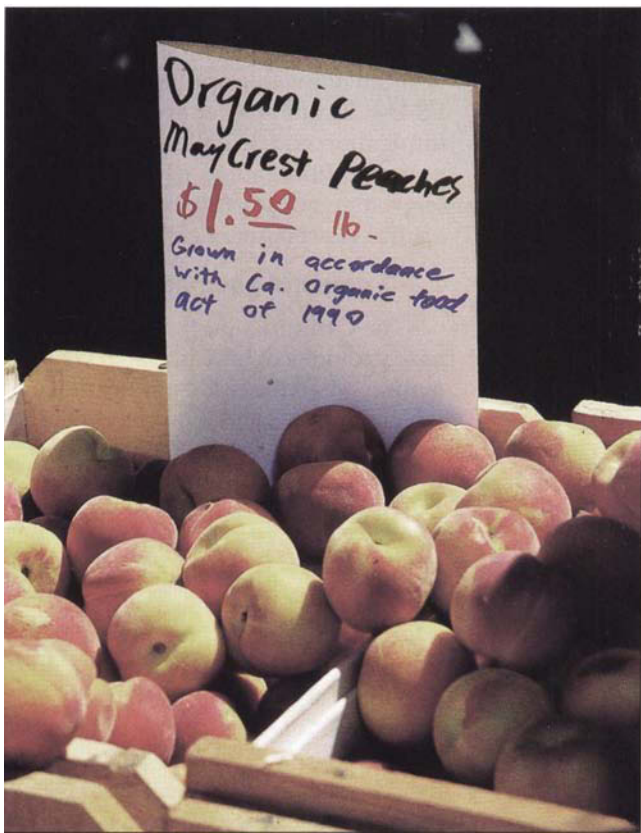 Organic
MayCrest Peaches
$1.50 lb.
Grown in accordance
with Ca. Organic food
act of 1990